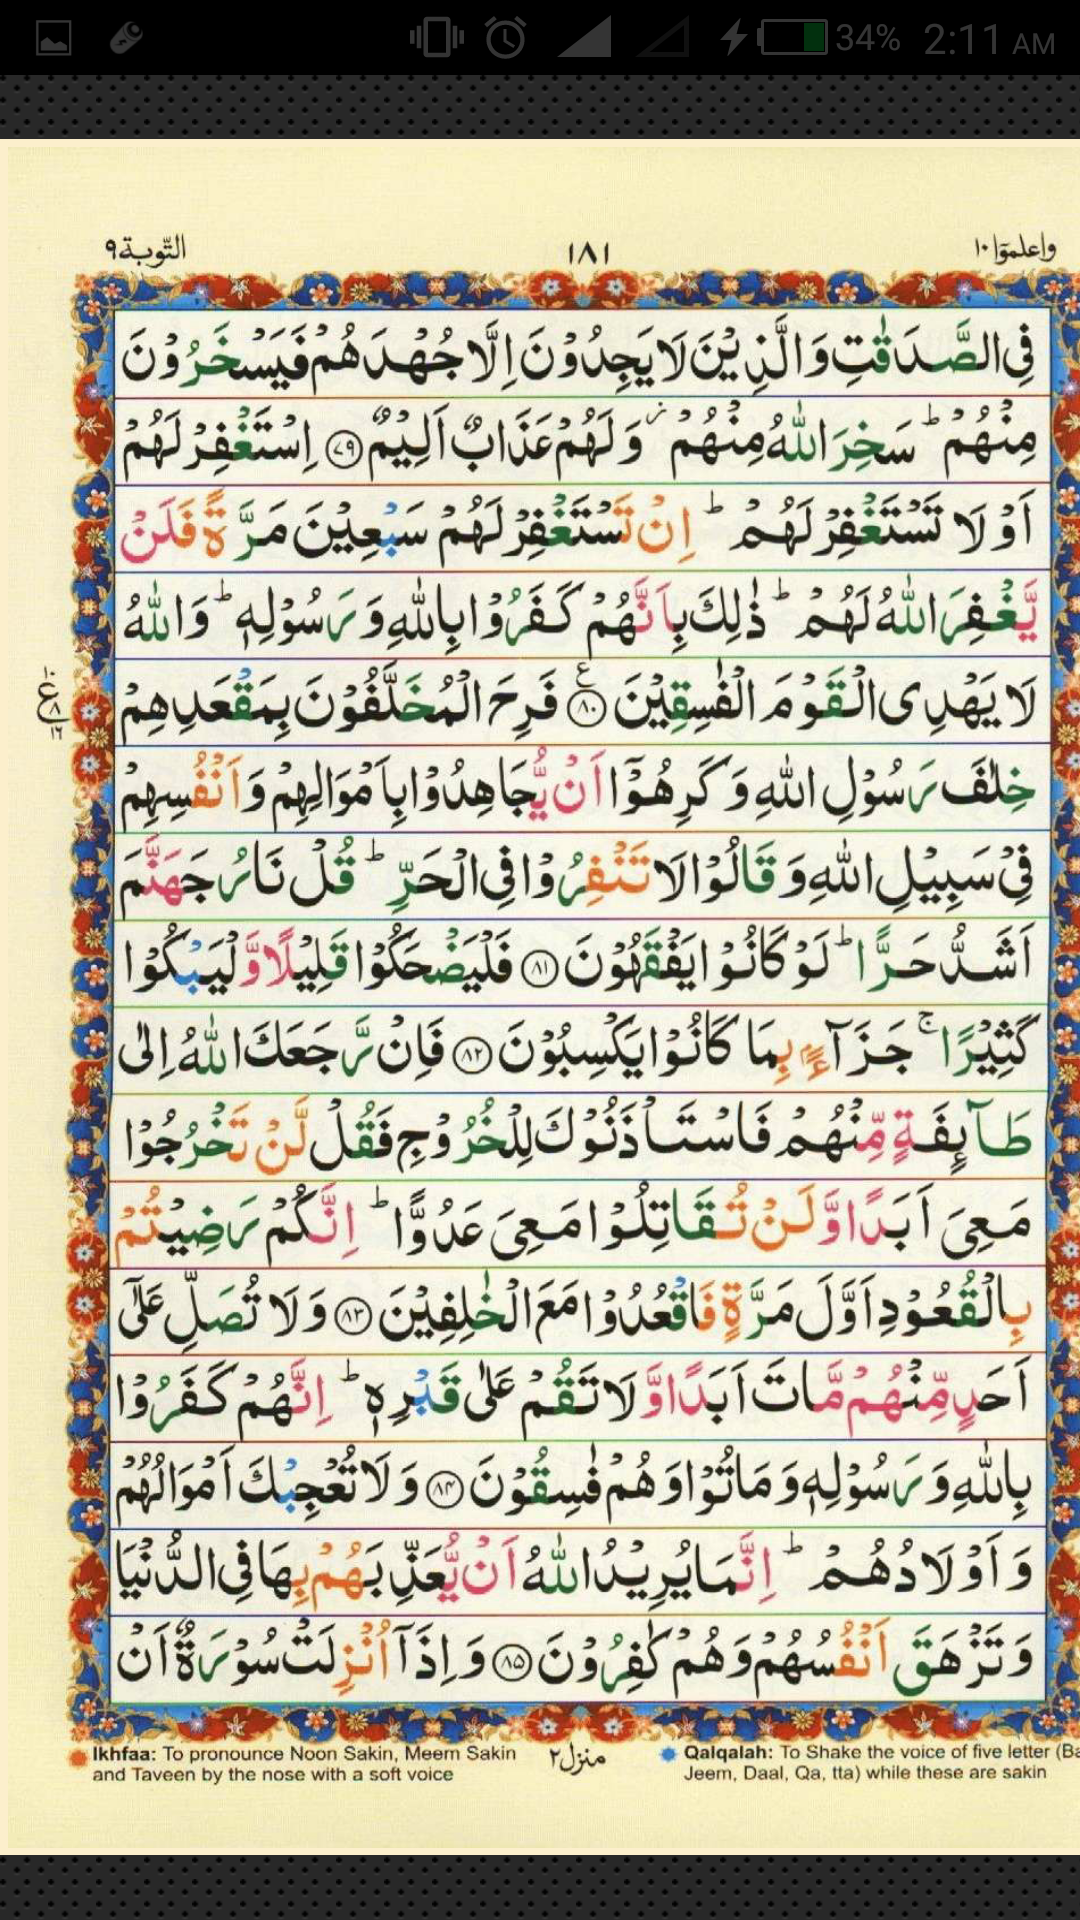 34% 2:11 AM
واعلموٓا ١٠ ١٨١ التّوبة ٩
فِی الصَّدَقٰتِ وَ الَّذِیْنَ لَا یَجِدُوْنَ اِلَّا جُهْدَهُمْ فَیَسْخَرُوْنَ
مِنْهُمْ ؕ سَخِرَ اللّٰهُ مِنْهُمْ ؗ وَ لَهُمْ عَذَابٌ اَلِیْمٌ ﴿۷۹﴾ اِسْتَغْفِرْ لَهُمْ
اَوْ لَا تَسْتَغْفِرْ لَهُمْ ؕ اِنْ تَسْتَغْفِرْ لَهُمْ سَبْعِیْنَ مَرَّةً فَلَنْ
یَّغْفِرَ اللّٰهُ لَهُمْ ؕ ذٰلِكَ بِاَنَّهُمْ كَفَرُوْا بِاللّٰهِ وَ رَسُوْلِهٖ ؕ وَ اللّٰهُ
لَا یَهْدِی الْقَوْمَ الْفٰسِقِیْنَ ﴿۸۰﴾ ع فَرِحَ الْمُخَلَّفُوْنَ بِمَقْعَدِهِمْ
١٠ ع ٨ ١٦
خِلٰفَ رَسُوْلِ اللّٰهِ وَ كَرِهُوْۤا اَنْ یُّجَاهِدُوْا بِاَمْوَالِهِمْ وَ اَنْفُسِهِمْ
فِیْ سَبِیْلِ اللّٰهِ وَ قَالُوْا لَا تَنْفِرُوْا فِی الْحَرِّ ؕ قُلْ نَارُ جَهَنَّمَ
اَشَدُّ حَرًّا ؕ لَوْ كَانُوْا یَفْقَهُوْنَ ﴿۸۱﴾ فَلْیَضْحَكُوْا قَلِیْلًا وَّ لْیَبْكُوْا
كَثِیْرًا ۚ جَزَآءًۢ بِمَا كَانُوْا یَكْسِبُوْنَ ﴿۸۲﴾ فَاِنْ رَّجَعَكَ اللّٰهُ اِلٰی
طَآىِٕفَةٍ مِّنْهُمْ فَاسْتَاْذَنُوْكَ لِلْخُرُوْجِ فَقُلْ لَّنْ تَخْرُجُوْا
مَعِیَ اَبَدًا وَّ لَنْ تُقَاتِلُوْا مَعِیَ عَدُوًّا ؕ اِنَّكُمْ رَضِیْتُمْ
بِالْقُعُوْدِ اَوَّلَ مَرَّةٍ فَاقْعُدُوْا مَعَ الْخٰلِفِیْنَ ﴿۸۳﴾ وَ لَا تُصَلِّ عَلٰۤی
اَحَدٍ مِّنْهُمْ مَّاتَ اَبَدًا وَّ لَا تَقُمْ عَلٰی قَبْرِهٖ ؕ اِنَّهُمْ كَفَرُوْا
بِاللّٰهِ وَ رَسُوْلِهٖ وَ مَاتُوْا وَ هُمْ فٰسِقُوْنَ ﴿۸۴﴾ وَ لَا تُعْجِبْكَ اَمْوَالُهُمْ
وَ اَوْلَادُهُمْ ؕ اِنَّمَا یُرِیْدُ اللّٰهُ اَنْ یُّعَذِّبَهُمْ بِهَا فِی الدُّنْیَا
وَ تَزْهَقَ اَنْفُسُهُمْ وَ هُمْ كٰفِرُوْنَ ﴿۸۵﴾ وَ اِذَاۤ اُنْزِلَتْ سُوْرَةٌ اَنْ
منزل ٢
Ikhfaa: To pronounce Noon Sakin, Meem Sakin
and Taveen by the nose with a soft voice
Qalqalah: To Shake the voice of five letter (Ba
Jeem, Daal, Qa, tta) while these are sakin